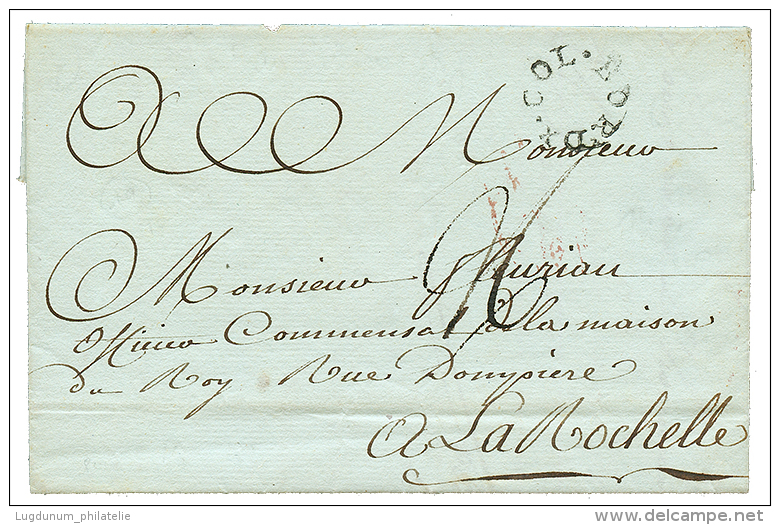 COL. PAR BORD
A Monsieur
Monsieur fleuriau
Officier Commensal de la maison
du Roy Rue Dompierre
A La Rochelle
Lugdunum_philatelie
delcampe.net